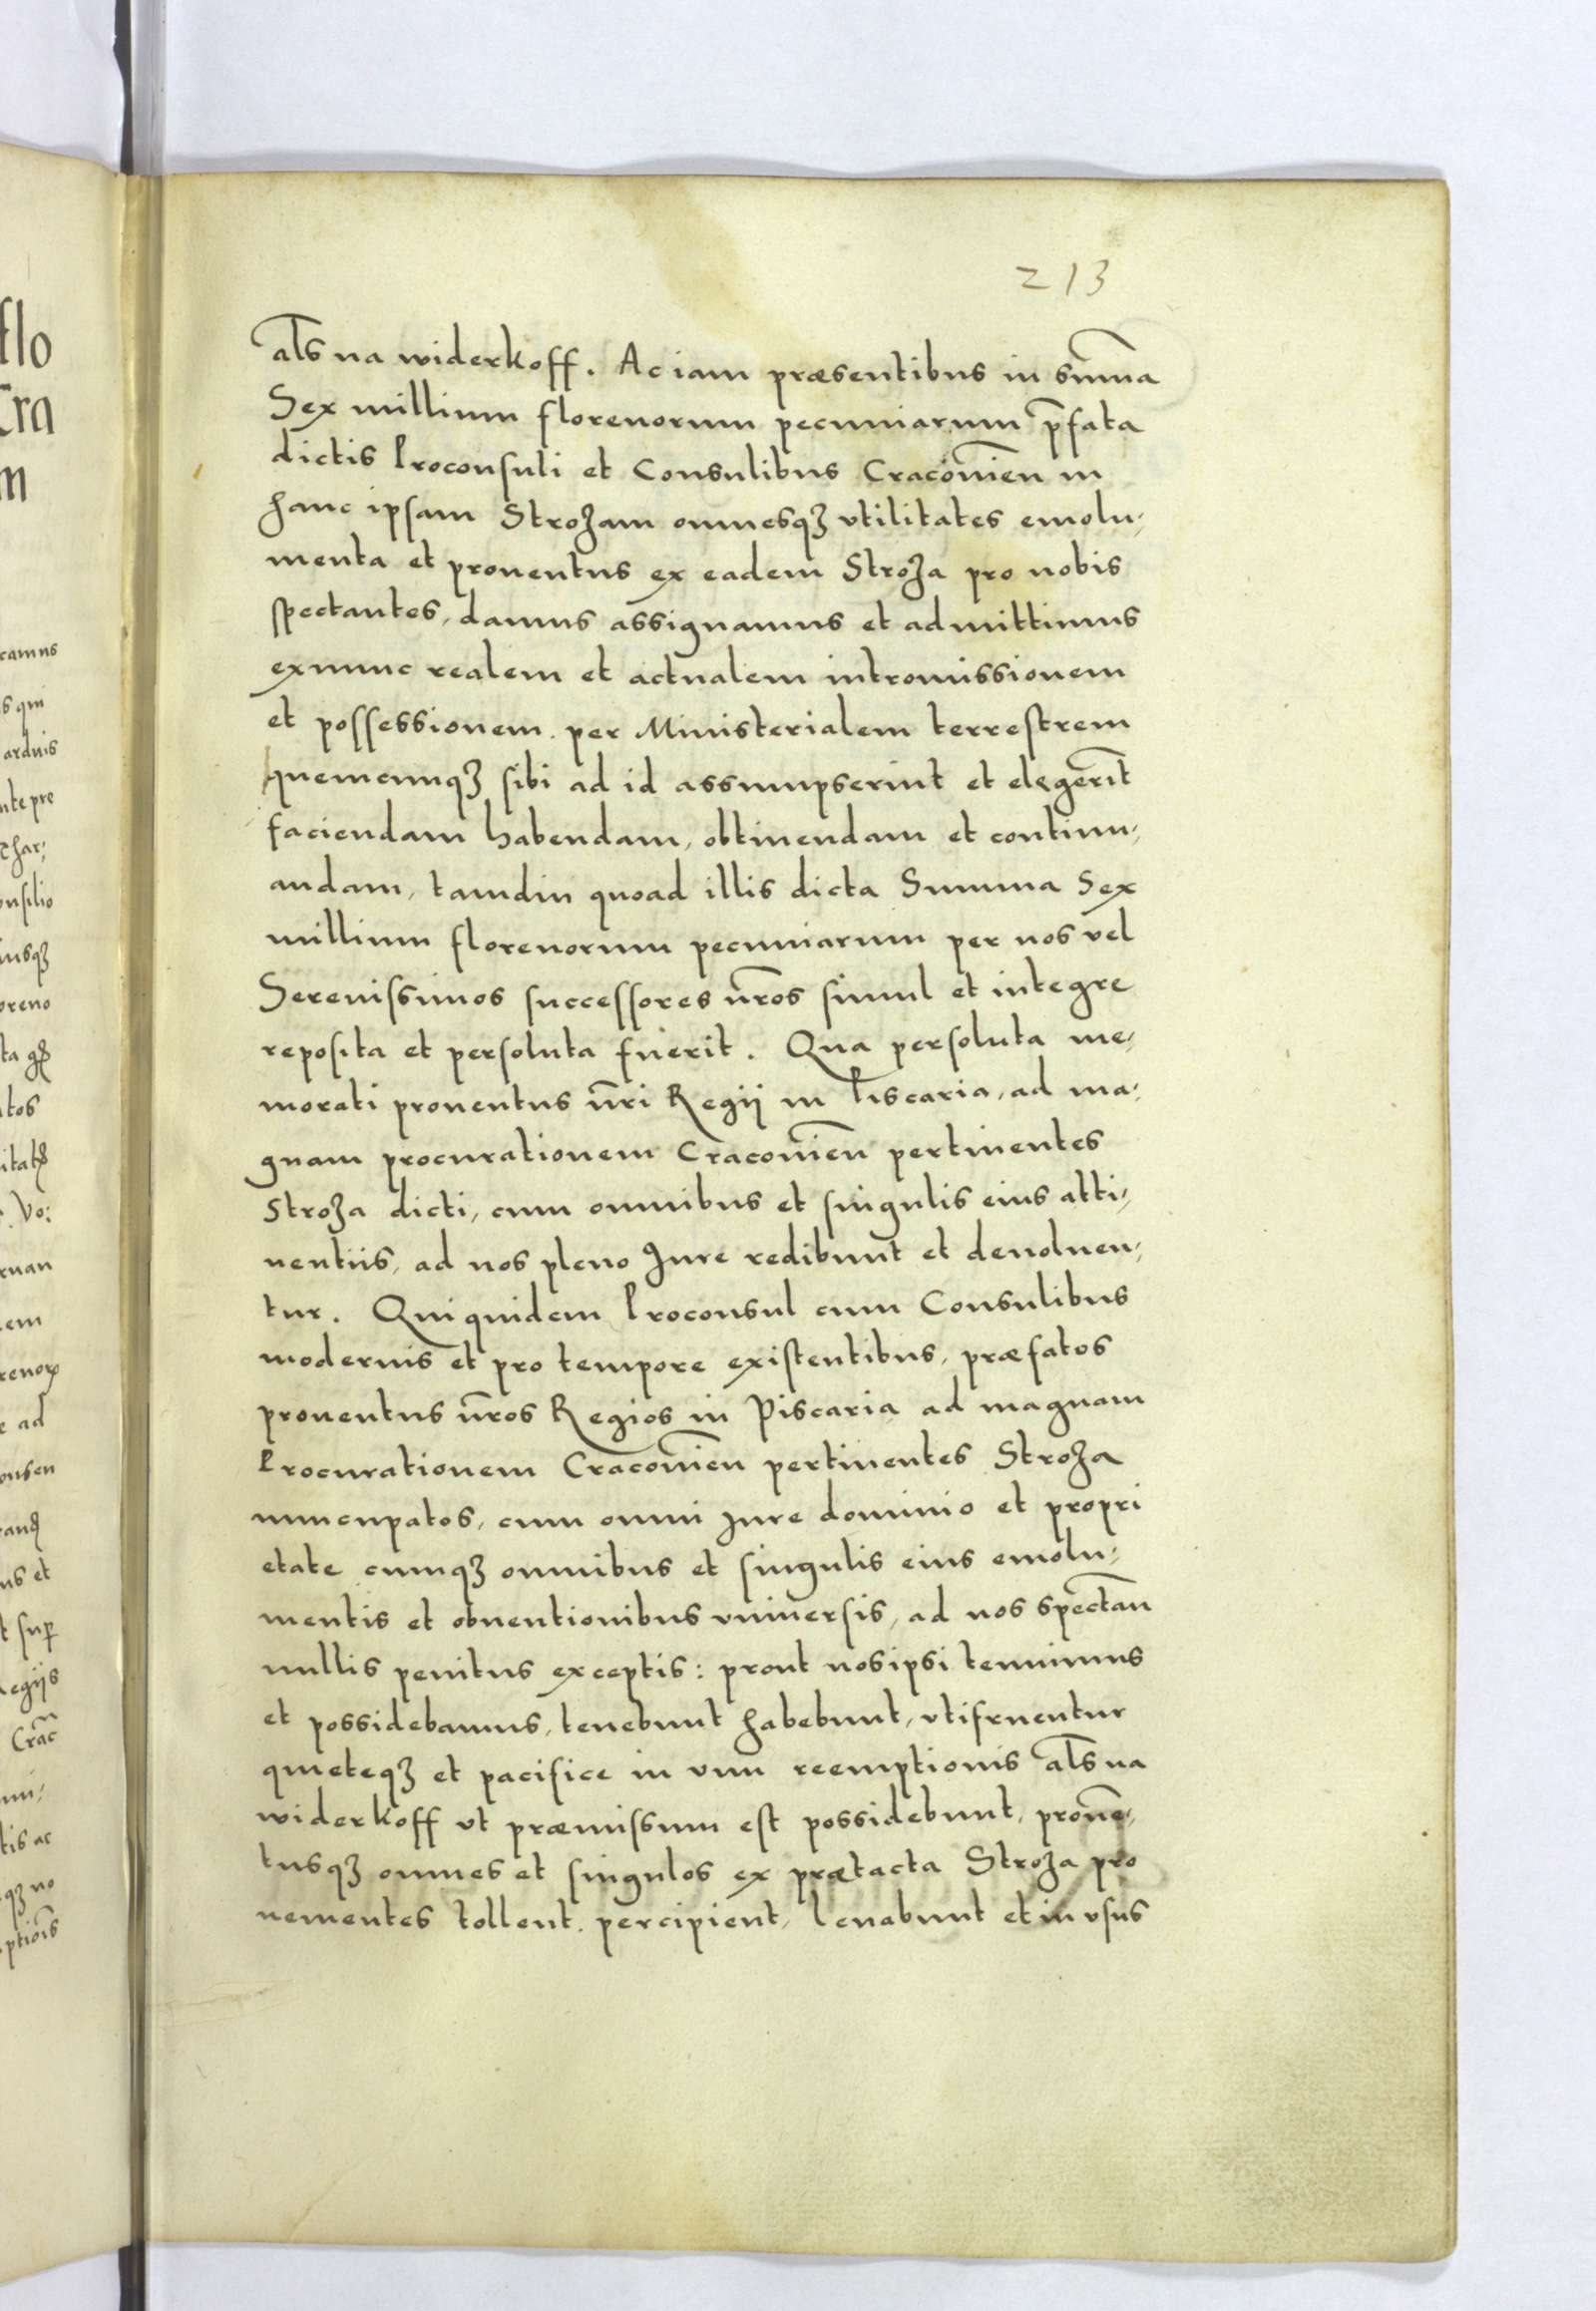 213
als na widerkoff. Ac iam præsentibus in sum̄a
Sex millium florenorum pecuniarum p̄fata
dictis Proconsuli et Consulibus Cracovien̄ in
hanc ipsam Strozam omnesqȝ vtilitates emolu,
menta et prouentus ex eadem Stroza pro nobis
spectantes, damus assignamus et admittimus
exnunc realem et actualem intromissionem
et possessionem. per Ministerialem terrestrem
quemcunqȝ sibi ad id assumpserint et elęgerīt
faciendam habendam, obtinendam et continu,
andam, tamdiu quoad illis dicta Summa Sex
millium florenorum pecuniarum per nos vel
Serenissimos successores n̄ros simul et integre
reposita et persoluta fuerit. Qua persoluta me,
morati prouentus n̄ri Regij in Piscaria, ad ma,
gnam procurationem Cracovien̄ pertinentes
Stroza dicti, cum omnibus et singulis eius atti,
nentiis, ad nos pleno Jure redibunt et deuoluen,
tur. Qui quidem Proconsul cum Consulibus
modernis et pro tempore existentibus, præfatos
prouentus n̄ros Regios in Piscaria ad magnam
Procurationem Cracovien̄ pertinentes Stroza
nuncupatos, cum omni Jure dominio et propri
etate cumqȝ omnibus et singulis eius emolu,
mentis et obuentionibus vniuersis, ad nos spectan̄
nullis penitus exceptis: prout nos ipsi tenuimus
et possidebamus, tenebunt habebunt, vtifruentur
quieteqȝ et pacifice in vim reemptionis als na
widerkoff vt præmissum est possidebunt, prouē,
tusqȝ omnes et singulos ex prætacta Stroza pro
uenientes tollent. percipient, leuabunt et in vsus
flo
Cra
m
camus
s qui
arduis
nte pre
char,
onsilio
iusqȝ
oreno
tos
Vo:
ruan
em
e ad
onsen
us et
egijs
Crac̄
tis ac
qȝ no
ptiōis